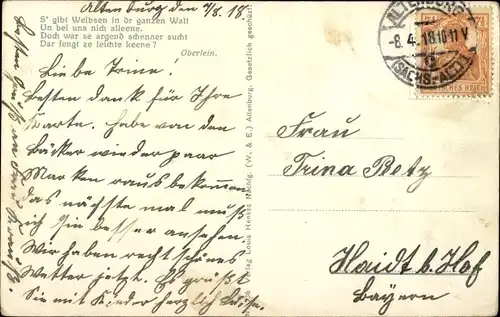 Altenburg den 7/8. 18.
S' gibt Weibsen in dr ganzen Walt
Un bei uns nich alleene.
Doch war se argend schenner sucht
Dar fengt ze leichte keene?
Oberlein.
Liebe Trine!
Besten dank für Ihre
Karte. habe von den
Bäcker wieder paar
Marken rausbekommen
das nächste mal muß
ich sie besser ansehen.
Wir haben recht schönes
Wetter jetzt. Es grüßt
Sie mit Kinder herzlich
Besten Gruß an
Verlag Louis Henkes Nachfg. (W. & E.) Altenburg. Gesetzlich geschützt
ALTENBURG
-8.4.18 10-11 V
(SACHS.-ALT.)
7½
DEUTSCHES REICH
Frau
Trina Betz
Haidt b. Hof
Bayern